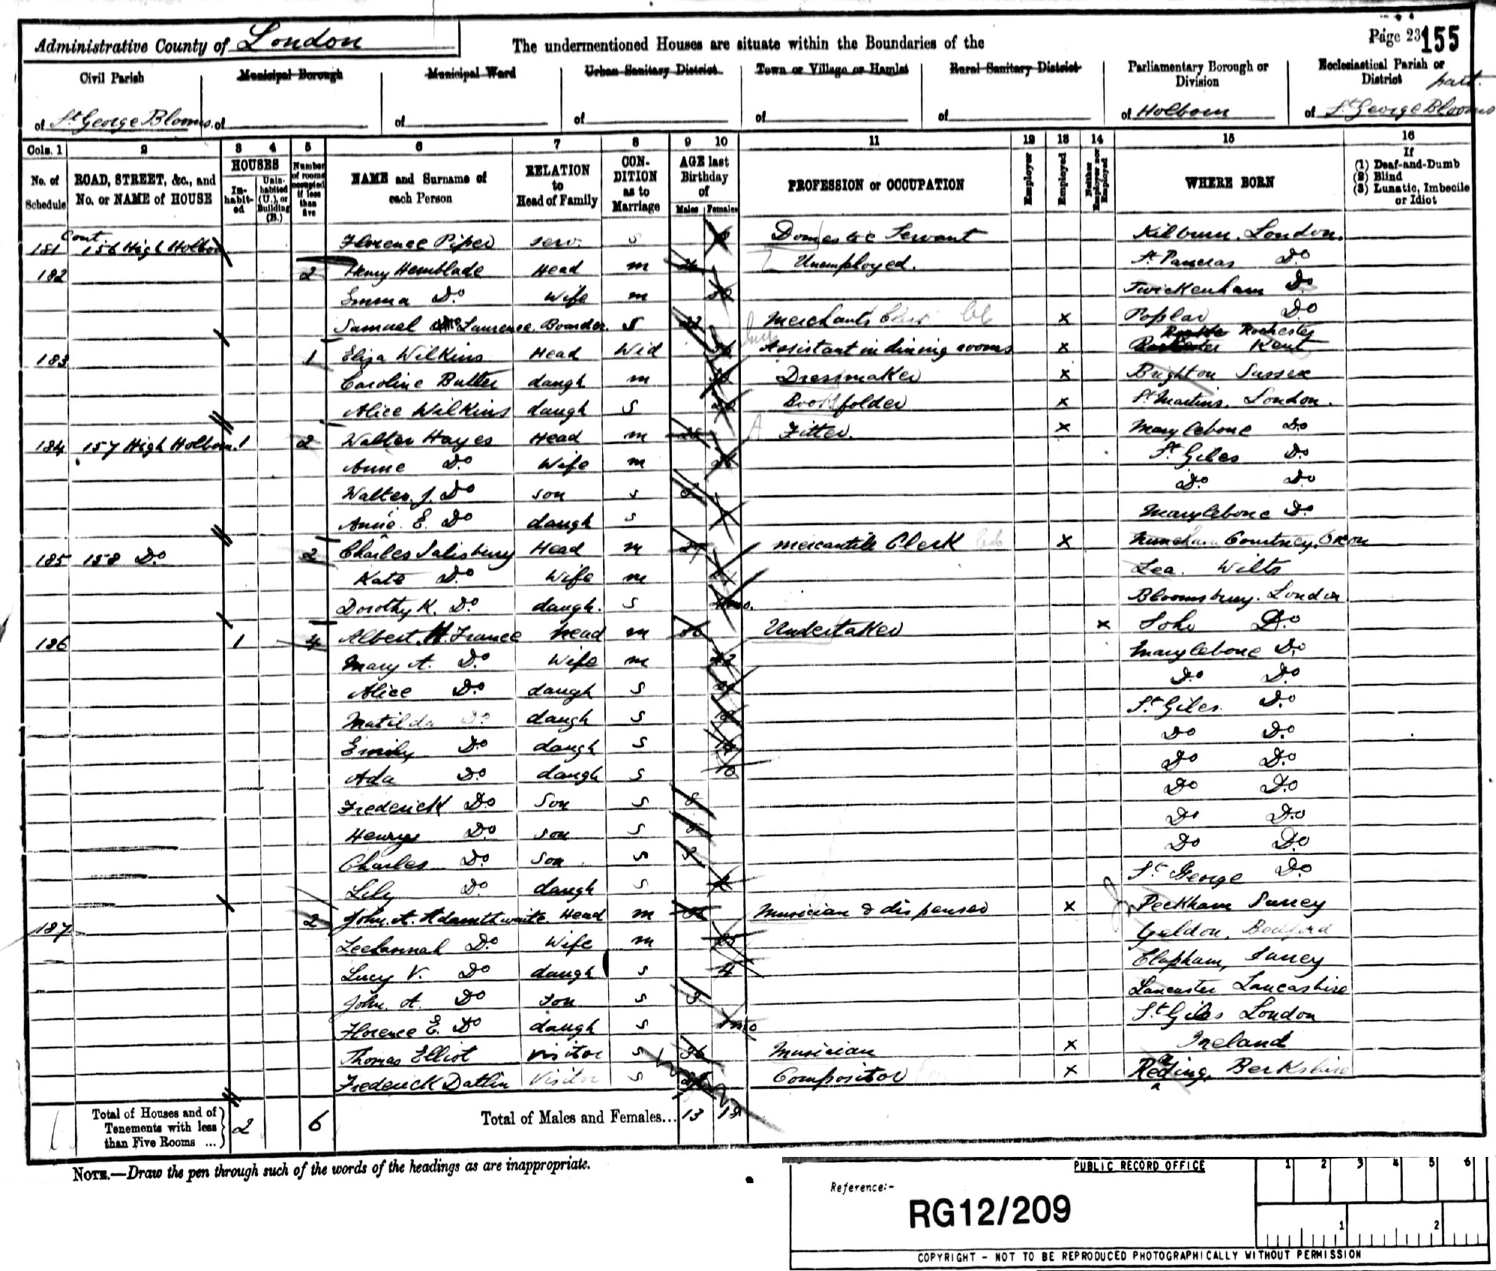 Administrative County of London
The undermentioned Houses are situate within the Boundaries of the
Page 23
155
Civil Parish
Municipal Borough
Municipal Ward
Urban Sanitary District
Town or Village or Hamlet
Rural Sanitary District
Parliamentary Borough or Division
Ecclesiastical Parish or District
part
of St George Blooms.
of
of
of
of
of
of Holborn
of St George Blooms
Cols. 1 2 3 4 5 6 7 8 9 10 11 12 13 14 15 16
No. of Schedule
ROAD, STREET, &c., and No. or NAME of HOUSE
HOUSES
Inhabited
Uninhabited (U.), or Building (B.)
Number of rooms occupied if less than five
NAME and Surname of each Person
RELATION to Head of Family
CONDITION as to Marriage
AGE last Birthday of
Males Females
PROFESSION or OCCUPATION
Employer
Employed
Neither Employer nor Employed
WHERE BORN
If
(1) Deaf-and-Dumb
(2) Blind
(3) Lunatic, Imbecile or Idiot
181 Cont 156 High Holborn Florence Piper serv. S Domestic Servant Kilburn. London.
182 2 Henry Hemblade Head m Unemployed. St Pancras Do
Emma Do Wife m Twickenham Do
Samuel Laurence Boarder S Merchants x Poplar Do
183 1 Eliza Wilkins Head Wid Assistant in dining rooms x Rochester Kent
Caroline Butler daugh m Dressmaker x Brighton Sussex
Alice Wilkins daugh S Bookfolder x St Martins. London.
184 157 High Holborn 1 2 Walter Hayes Head m Fitter. x Marylebone Do
Anne Do Wife m St Giles Do
Walter J. Do son s Do Do
Annie E. Do daugh s Marylebone Do
185 158 Do 2 Charles Salisbury Head m 27 mercantile Clerk x Courtney. Oxon
Kate Do Wife m Lea. Wilts
Dorothy K. Do daugh. s Bloomsbury. London
186 1 4 Albert H. France Head m Undertaker x Soho Do
Mary A. Do Wife m 42 Marylebone Do
Alice Do daugh s Do Do
Matilda Do daugh s St Giles. Do
Emily Do daugh s Do Do
Ada Do daugh s 10 Do Do
Frederick Do Son s Do Do
Henry Do son s Do Do
Charles Do Son s Do Do
Lily Do daugh s St George Do
187 2 John. A. Adamthwaite Head m Musician & dispenser x Peckham Surrey
Do Wife m
Lucy V. Do daugh s 4 Clapham, Surrey
John. A. Do Son s 3 Lancaster Lancashire
Florence E. Do daugh s St Giles London
Thomas Elliot Visitor s 36 Musician x Ireland
Frederick Datlin Visitor s Compositor x Reading, Berkshire
Total of Houses and of Tenements with less than Five Rooms ...
2 6
Total of Males and Females... 13
NOTE.—Draw the pen through such of the words of the headings as are inappropriate.
PUBLIC RECORD OFFICE
1 2 3 4 5 6
Reference:-
RG12/209
1 2
COPYRIGHT - NOT TO BE REPRODUCED PHOTOGRAPHICALLY WITHOUT PERMISSION